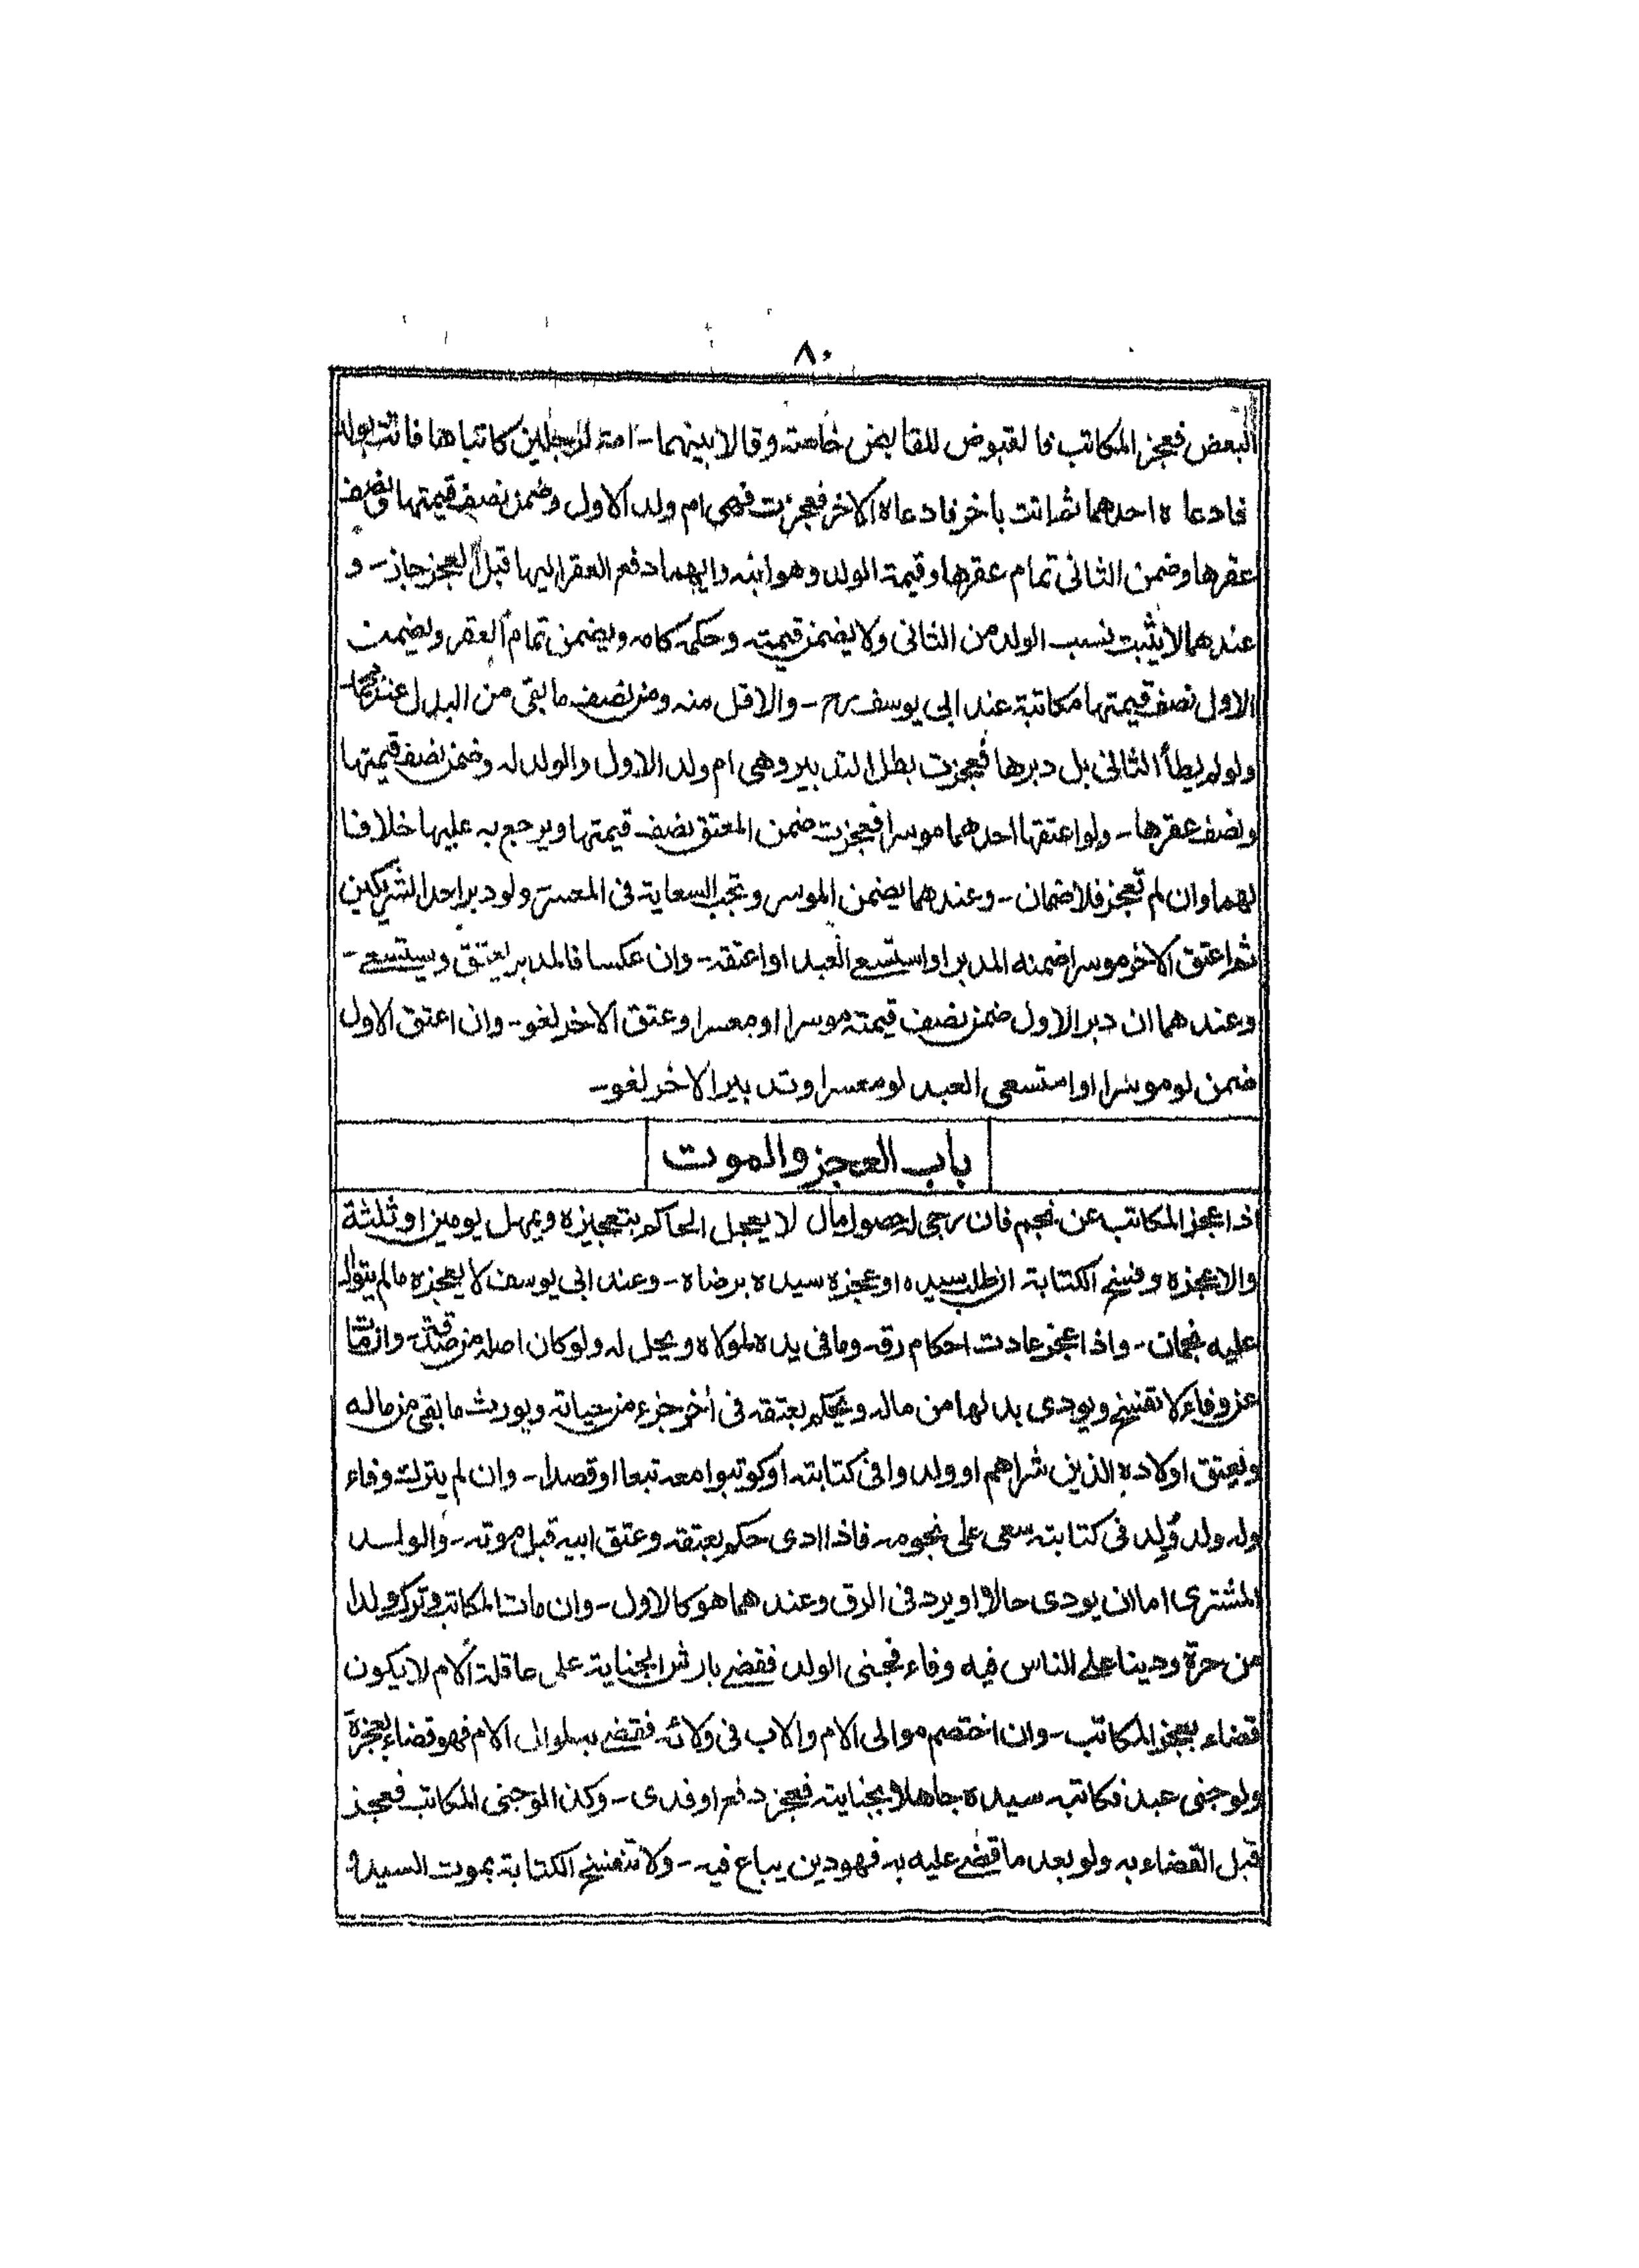 ٨٠
البعض فعجز المكاتب فالمقبوض للقابض خاصة وقالا بينهما - امة لرجلين كاتباها فاتت بولد
فادعاه احدهما ثم اتت باخر فادعاه الاخر فعجزت فهى ام ولد الاول وضمن نصف قيمتها ونصف
عقرها وضمن الثانى تمام عقرها وقيمة الولد وهو ابنه وايهما دفع العقر اليها قبل العجز جاز - و
عندهما لا يثبت نسب الولد من الثانى ولا يضمن قيمته وحكمه كامه ويضمن تمام العقر ويضمن
الاول نصف قيمتها مكاتبة عند ابى يوسف رح - والاقل منه ومن نصف ما بقى من البدل عند محمد
ولو لم يطأ الثانى بل دبرها فعجزت بطل التدبير وهى ام ولد الاول والولد له وضمن نصف قيمتها
ونصف عقرها - ولو اعتقها احدهما موسرا فعجزت ضمن المعتق نصف قيمتها ويرجع به عليها خلافا
لهما وان لم تعجز فلا ضمان - وعندهما يضمن الموسر وتجب السعاية فى المعسر ولو دبر احد الشريكين
ثم اعتق الاخر موسرا ضمنه المدبر او استسع العبد او اعتقه - وان عكسا فالمدبر يعتق ويستسع -
وعندهما ان دبر الاول ضمن نصف قيمته موسرا او معسرا وعتق الاخر لغو - وان اعتق الاول
ضمن لو موسرا او استسعى العبد لو معسرا وتدبير الاخر لغو -
باب العجز والموت
اذا عجز المكاتب عن نجم فان رجى له حصول مال لا يعجل الحاكم بتعجيزه ويمهل يومين او ثلثة
والا عجزه وفسخ الكتابة ان طلب سيده او عجزه سيده برضاه - وعند ابى يوسف لا يعجزه ما لم يتوال
عليه نجمان - واذا عجز عادت احكام رقه وما فى يده لمولاه ويحل له ولو كان اصله من صدقة - وان مات
عن وفاء لا تفسخ ويودى بدلها من ماله ويحكم بعتقه فى أخر جزء من حياته ويورث ما بقى من ماله
ويعتق اولاده الذين شراهم او ولدوا فى كتابته او كوتبوا معه تبعا او قصدا - وان لم يترك وفاء
وله ولد وُلِد فى كتابته سعى على نجومه فاذا ادى حكم بعتقه وعتق ابيه قبل موته - والولد
المشترى اما ان يودى حالا او يرد فى الرق وعندهما هو كالاول - وان مات المكاتب وترك ولدا
من حرة ودينا على الناس فيه وفاء فجنى الولد فقضے بارش الجناية على عاقلة الام لا يكون
قضاء بعجز المكاتب - وان اختصم موالى الام والاب فى ولائه فقضے به لموالى الام فهو قضاء بعجزه
ولو جنى عبد فكاتبه سيده جاهلا بجنايته فعجز دفع او فدى - وكذا لو جنى المكاتب فعجز
قبل القضاء به ولو بعد ما قضے عليه به فهو دين يباع فيه - ولا تنفسخ الكتابة بموت السيد